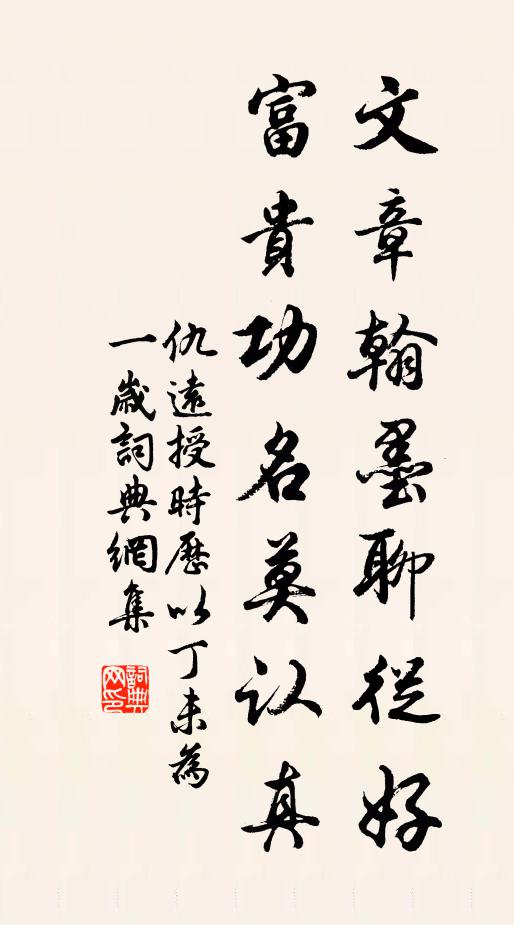 文章翰墨聊從好
富貴功名莫认真
仇遠授時歷以丁未為
一歲詞典網集
詞典
网印